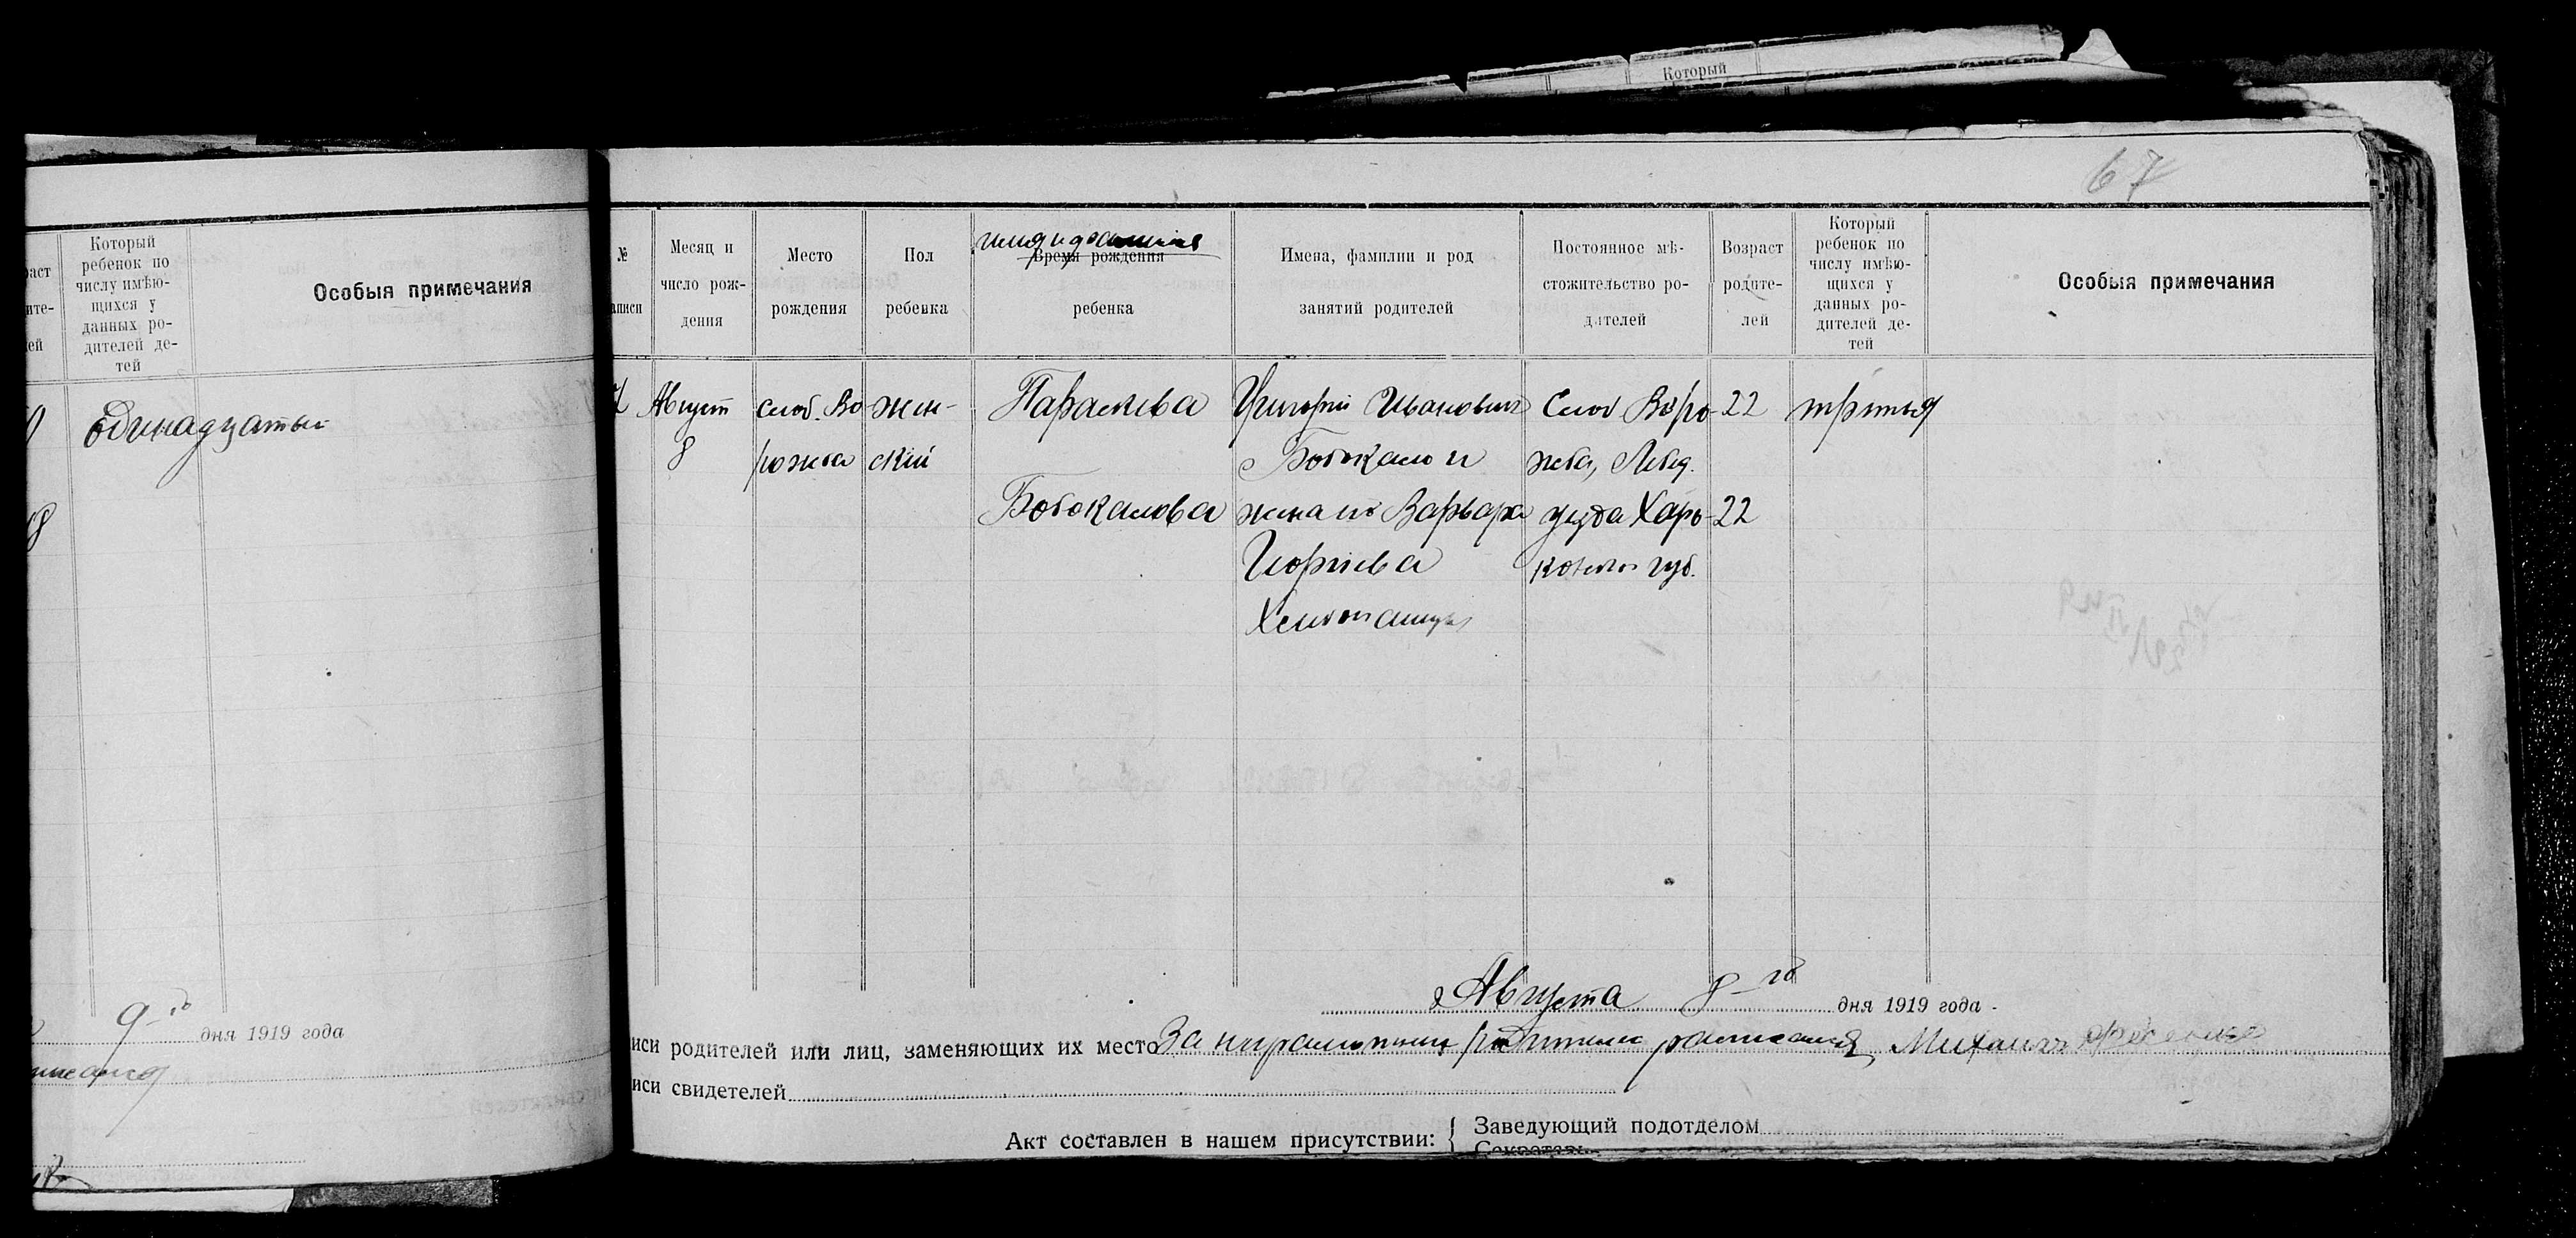 Который
67
Который
ребенок по
числу имѣю-
щихся у
данных ро-
дителей де-
тей
Особыя примечания
одинадцатый
9-го дня 1919 года
№
Месяц и
число рож-
дения
Место
рождения
Пол
ребенка
Время рождения
ребенка
Имена, фамилии и род
занятий родителей
Постоянное мѣ-
стожительство ро-
дителей
Возраст
родите-
лей
Который
ребенок по
числу имѣю-
щихся у
данных ро-
дителей де-
тей
Особыя примечания
Август
8
слоб. Во
рожба
жен-
скій
Параскева
Бовкалова
Григорій Иванович
и
жена его Варвара
Слоб Воро-
жба, Лебед.
уезда Харь-
ковской губ.
22
22
третья
Августа 8-го дня 1919 года
иси родителей или лиц, заменяющих их место За неграмотных родителей расписался Михаил
иси свидетелей
Акт составлен в нашем присутствии:
Заведующий подотделом
Секретарь